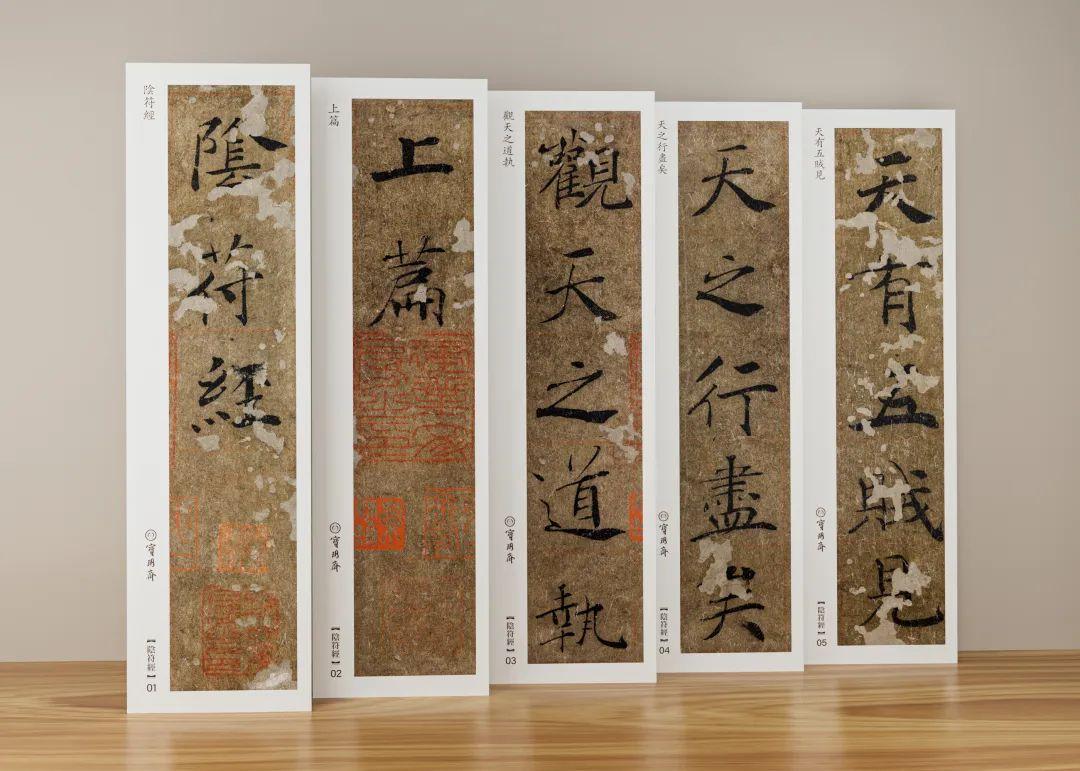 陰符經
陰符經
寶玥齋
【陰符經】
01
上篇
上篇
寶玥齋
【陰符經】
02
觀天之道執
觀天之道執
寶玥齋
【陰符經】
03
天之行盡矣
天之行盡矣
寶玥齋
【陰符經】
04
天有五賊見
天有五賊見
寶玥齋
【陰符經】
05